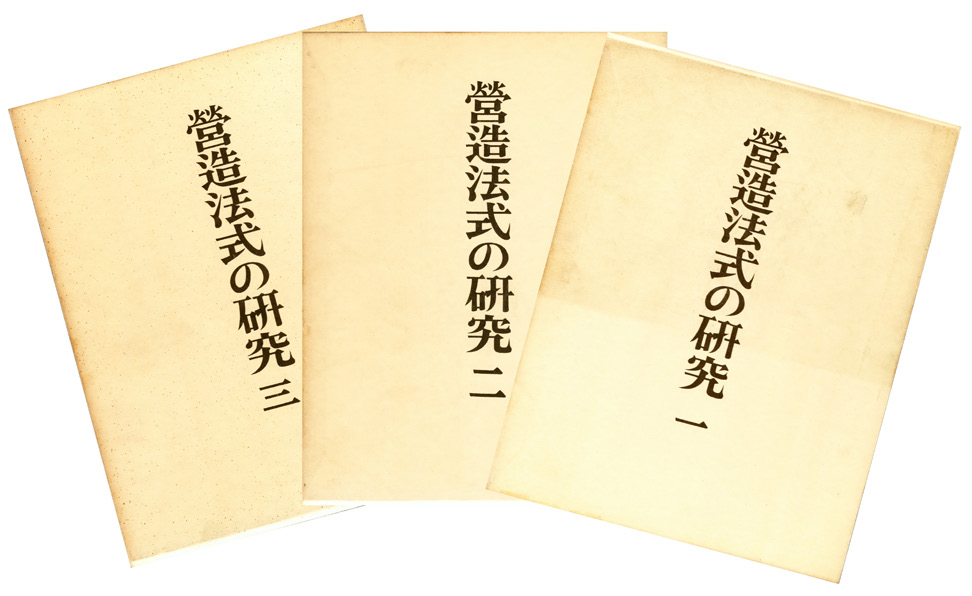 營造法式の研究 一
營造法式の研究 二
營造法式の研究 三